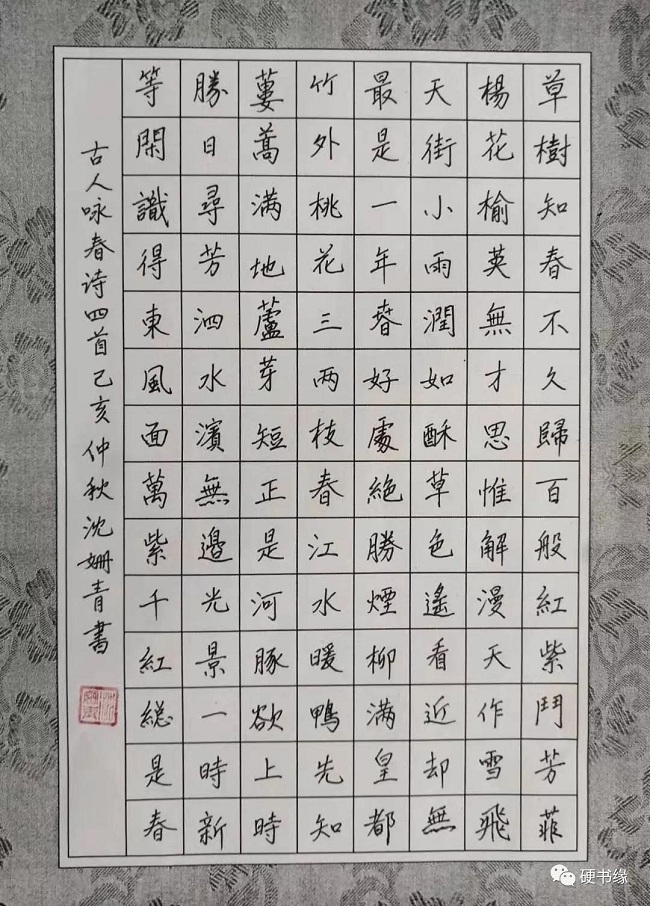 草樹知春不久歸百般紅紫鬥芳菲
楊花榆莢無才思惟解漫天作雪飛
天街小雨潤如酥草色遙看近却無
最是一年春好處絕勝煙柳滿皇都
竹外桃花三兩枝春江水暖鴨先知
蔞蒿滿地蘆芽短正是河豚欲上時
勝日尋芳泗水濱無邊光景一時新
等閑識得東風面萬紫千紅總是春
古人咏春诗四首己亥仲秋沈姗青書
硬书缘